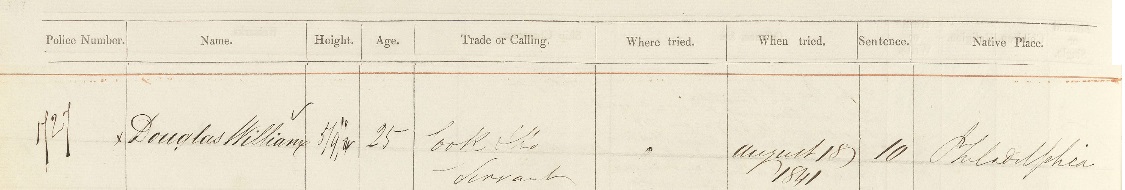 Police Number. Name. Height. Age. Trade or Calling. Where tried. When tried. Sentence. Native Place.
1727 x Douglas William 5/9 25 Cook August 18 10 Philadelphia
Servant 1841